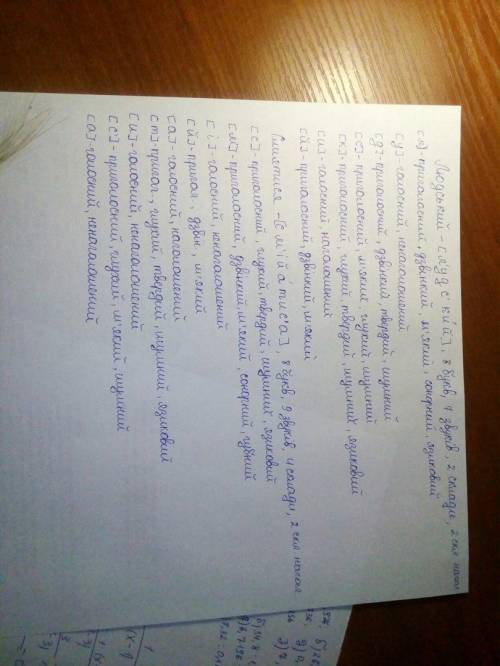 Людський - [л'удс'кий], 8 букв, 7 звуків, 2 склади, 2 скл наголо
[л] - приголосний, дзвінкий, м'який, сонорний, язиковий
[у] - голосний, ненаголошений
[д] - приголосний, дзвінкий, твердий, шумний
[с] - приголосний, м'який, глухий, шумний
[к] - приголосний, глухий, твердий, шумний, язиковий
[и] - голосний, наголошений
[й] - приголосний, дзвінкий, м'який
Сміятися - [с м' і й а т и с' а], 8 букв, 9 звуків, 4 склади, 2 скл наголо
[с] - приголосний, глухий, твердий, шумний, язиковий
[м] - приголосний, дзвінкий, м'який, сонорний, губний
[і] - голосний, ненаголошений
[й] - пригол, дзвін, м'який
[а] - голосний, наголошений
[т] - пригол, глухий, твердий, шумний, язиковий
[и] - голосний, ненаголошений
[с] - приголосний, глухий, м'який, шумний
[а] - голосний, ненаголошений